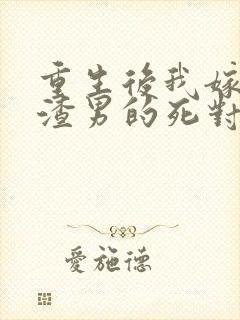 重生後我嫁
渣男的死對
愛施德